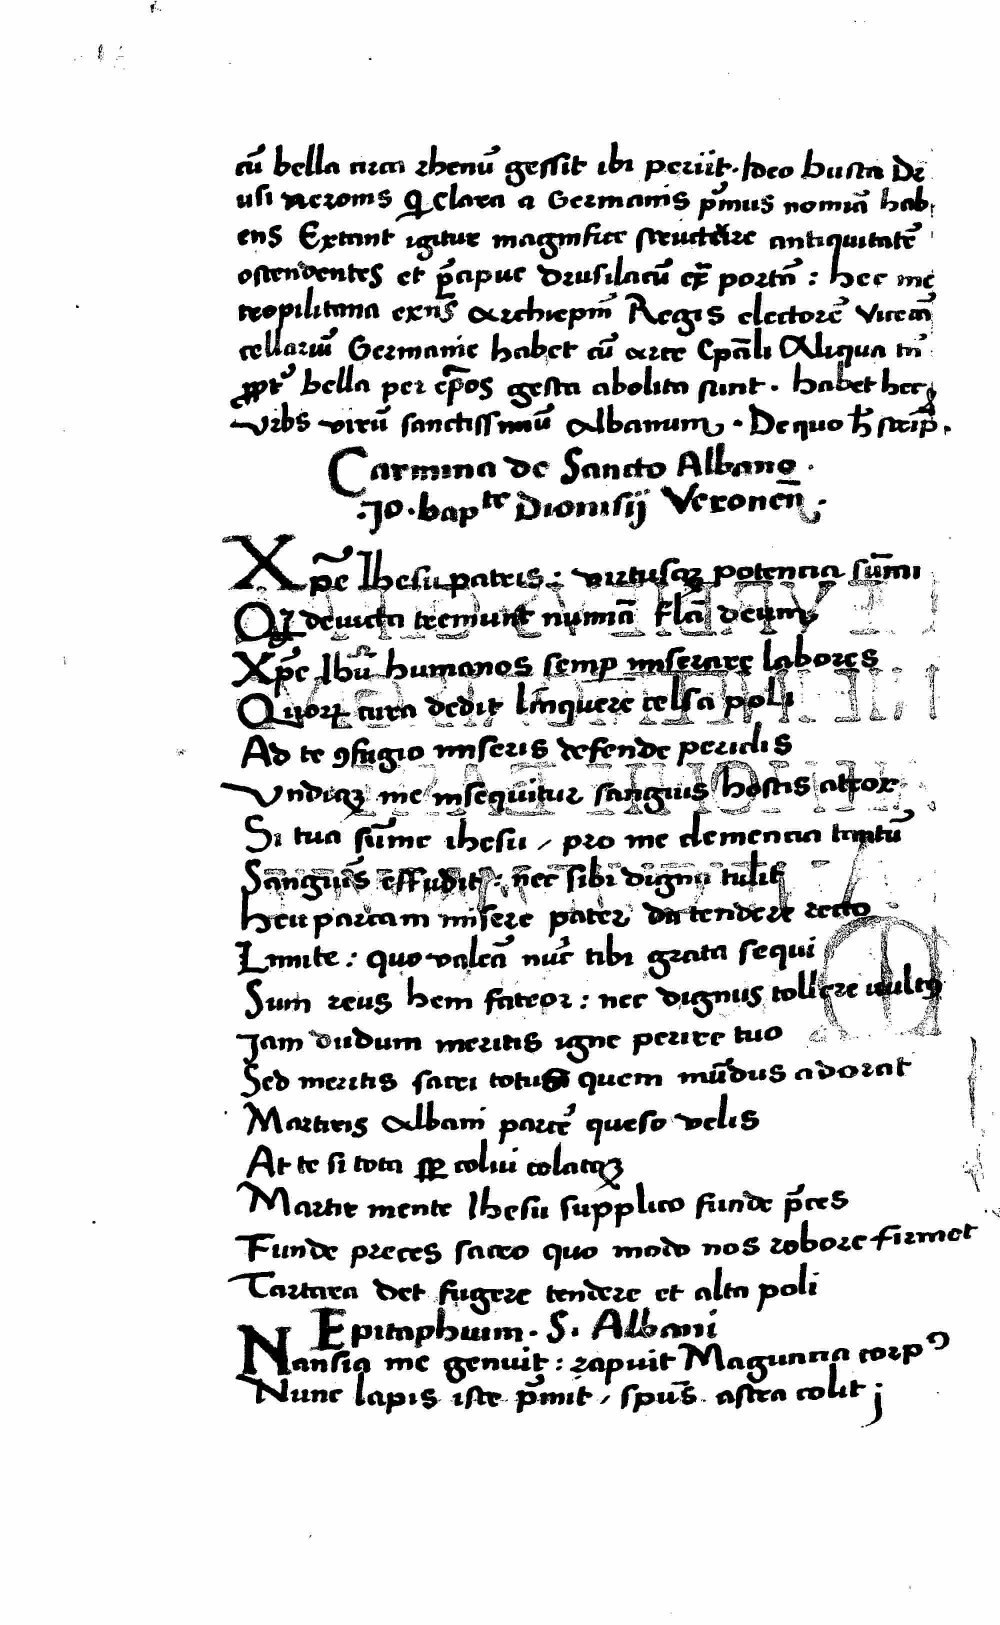 cū bella circa rhenū gessit ibi periit. Ideo busta Dr
usi neronis Qi clara a Germanis p̄mus nomiā hab,
ens Extant igitur magnifice structure antiquitatē
ostendentes et p̄cipue drusilacū ex portā : hec me
tropilitana exn̄s archiepm̄ Regis electorē vicecā
cellariū Germanie habet cū arce Epāli Aliqua tn̄
ppt' bella per ep̄os gesta abolita sunt. habet hec
vrbs virū sanctissimū albanum. De quo h̄ scrip̄.
Carmina de Sancto Albano.
.Jo. bapte Dionisij Veronen̄.
Xpe Ihesu patris : virtusqz potencia sūmi
Qz deuicta tremunt numiā flā deum
Xpe Ihū humanos semp miserare labores
Quorz cura dedit linquere celsa poli
Ad te ꝯfugio miseris defende periclis
Vndiqz me insequitur sanguis hostis atrox
Si tua sūme ihesu / pro me clemencia tantū
Sanguis effudit : nec sibi dignū tulit
heu parcam misere pater da tendere recto
Limite : quo valeā nūc tibi grata sequi
Sum reus hem fateor : nec dignus tollere uultꝯ
Jam dudum meritis igne perire tuo
Sed meritis sacri totus quem mūdus adorat
Martiris albani parcē queso velis
At te si tota colui colatqz
Martir mente Ihesu supplico funde p̄ces
Funde preces sacro quo modo nos robore firmet
Tartara det fugere tendere et alta poli
Epitaphium. S. Albani
Nansia me genuit : rapuit Maguncia corpꝯ
Nunc lapis iste p̄mit / spūs astra colit j